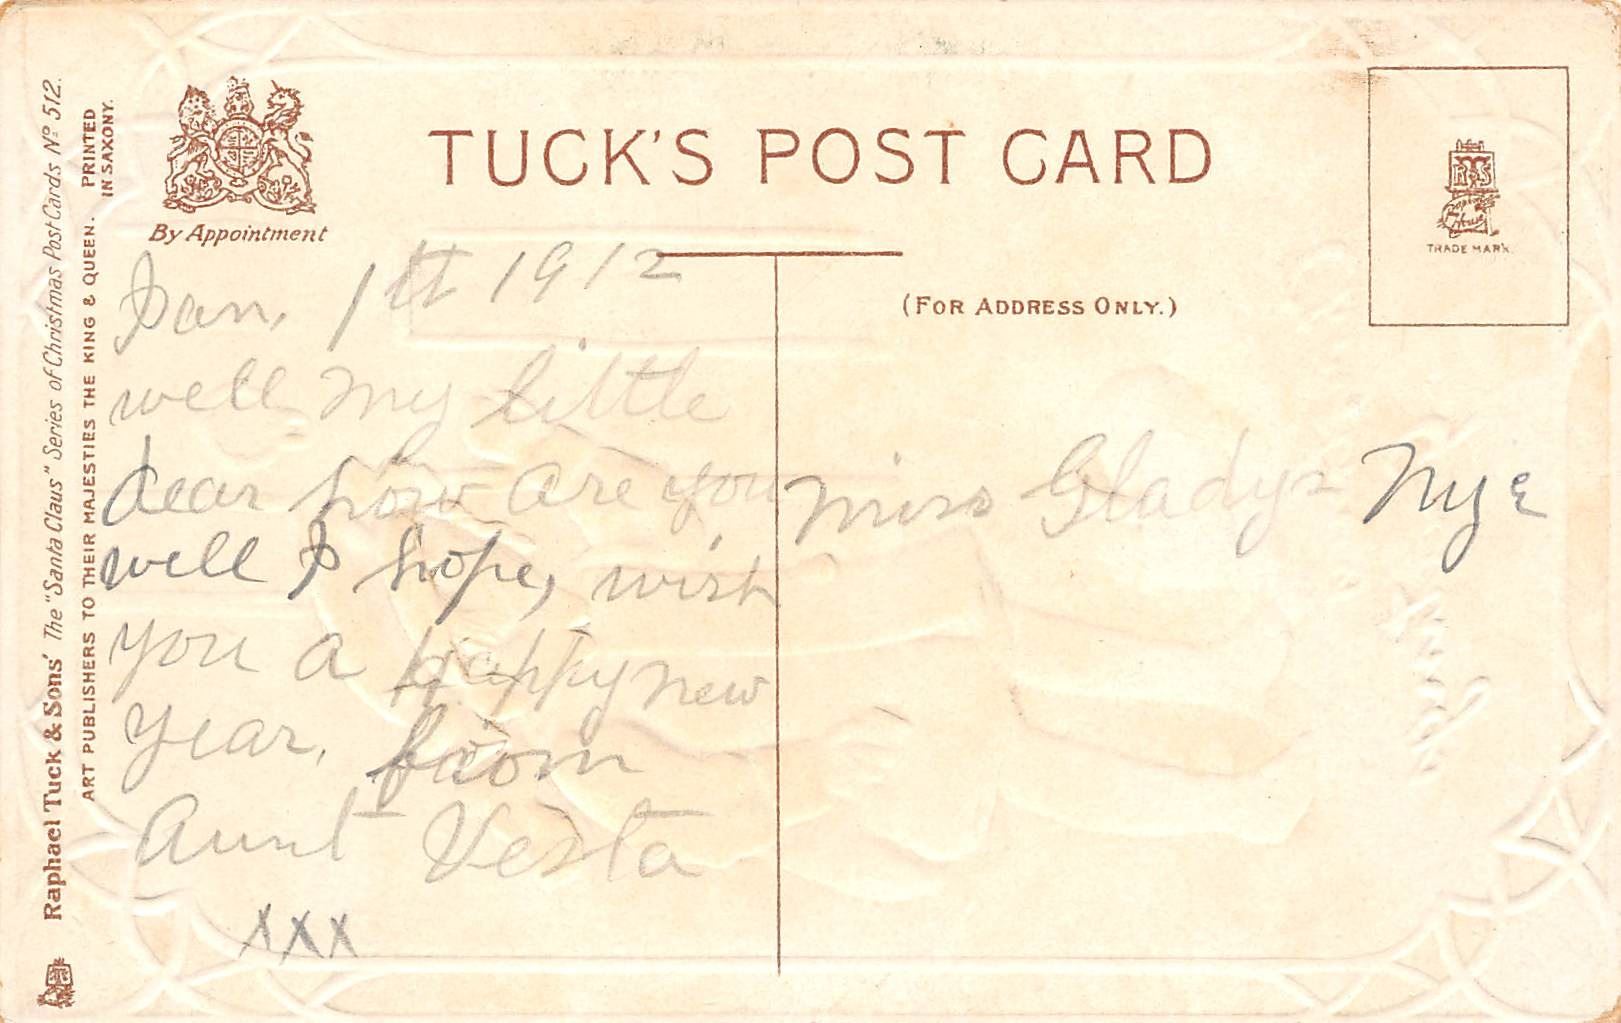 Raphael Tuck & Sons' The "Santa Claus" Series of Christmas Post Cards No 512.
ART PUBLISHERS TO THEIR MAJESTIES THE KING & QUEEN.
PRINTED
IN SAXONY.
By Appointment
TUCK'S POST CARD
(FOR ADDRESS ONLY.)
R T & S
Raphael House
TRADE MARK.
Jan, 1st 1912
well my little
dear how are you
well I hope, wish
you a happy new
year, from
Aunt Vesta
XXX
Miss Gladys Nye